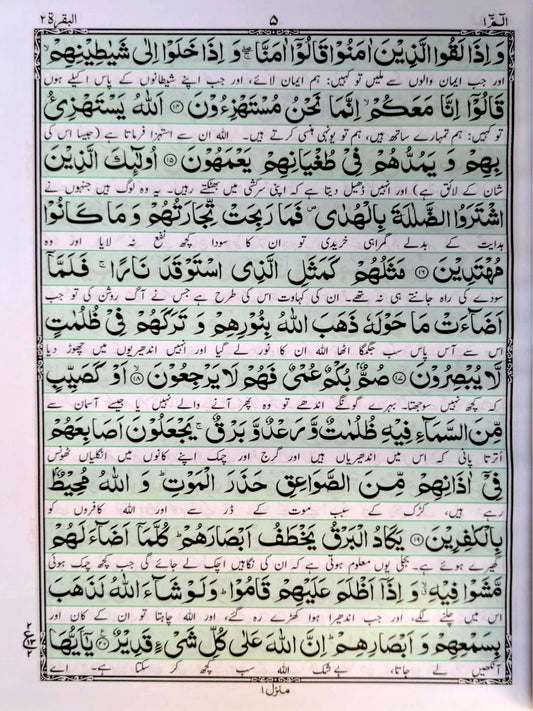 الٓمّٓ ۱ ۵ البقرة ۲
وَ اِذَا لَقُوا الَّذِیْنَ اٰمَنُوْا قَالُوْۤا اٰمَنَّا ۖۚ وَ اِذَا خَلَوْا اِلٰی شَیٰطِیْنِهِمْ ۙ
اور جب ایمان والوں سے ملیں تو کہیں: ہم ایمان لائے، اور جب اپنے شیطانوں کے پاس اکیلے ہوں
قَالُوْۤا اِنَّا مَعَكُمْ ۙ اِنَّمَا نَحْنُ مُسْتَهْزِءُوْنَ ﴿۱۴﴾ اَللّٰهُ یَسْتَهْزِئُ
تو کہیں: ہم تمہارے ساتھ ہیں، ہم تو یونہی ہنسی کرتے ہیں۔ اللہ ان سے استہزا فرماتا ہے (جیسا اس کی
بِهِمْ وَ یَمُدُّهُمْ فِیْ طُغْیَانِهِمْ یَعْمَهُوْنَ ﴿۱۵﴾ اُولٰٓىِٕكَ الَّذِیْنَ
شان کے لائق ہے) اور انہیں ڈھیل دیتا ہے کہ اپنی سرکشی میں بھٹکتے رہیں۔ یہ وہ لوگ ہیں جنہوں نے
اشْتَرَوُا الضَّلٰلَةَ بِالْهُدٰی ۪ فَمَا رَبِحَتْ تِّجَارَتُهُمْ وَ مَا كَانُوْا
ہدایت کے بدلے گمراہی خریدی تو ان کا سودا کچھ نفع نہ لایا اور وہ
مُهْتَدِیْنَ ﴿۱۶﴾ مَثَلُهُمْ كَمَثَلِ الَّذِی اسْتَوْقَدَ نَارًا ۚ فَلَمَّاۤ
سودے کی راہ جانتے ہی نہ تھے۔ ان کی کہاوت اس کی طرح ہے جس نے آگ روشن کی تو جب
اَضَآءَتْ مَا حَوْلَهٗ ذَهَبَ اللّٰهُ بِنُوْرِهِمْ وَ تَرَكَهُمْ فِیْ ظُلُمٰتٍ
اس سے آس پاس سب جگمگا اٹھا اللہ ان کا نور لے گیا اور انہیں اندھیریوں میں چھوڑ دیا
لَّا یُبْصِرُوْنَ ﴿۱۷﴾ صُمٌّۢ بُكْمٌ عُمْیٌ فَهُمْ لَا یَرْجِعُوْنَ ﴿۱۸﴾ۙ اَوْ كَصَیِّبٍ
کہ کچھ نہیں سوجھتا۔ بہرے گونگے اندھے تو وہ پھر آنے والے نہیں یا جیسے آسمان سے
مِّنَ السَّمَآءِ فِیْهِ ظُلُمٰتٌ وَّ رَعْدٌ وَّ بَرْقٌ ۚ یَجْعَلُوْنَ اَصَابِعَهُمْ
اُترتا پانی کہ اس میں اندھیریاں ہیں اور گرج اور چمک اپنے کانوں میں انگلیاں ٹھونس
فِیْۤ اٰذَانِهِمْ مِّنَ الصَّوَاعِقِ حَذَرَ الْمَوْتِ ؕ وَ اللّٰهُ مُحِیْطٌۢ
رہے ہیں، کڑک کے سبب موت کے ڈر سے اور اللہ کافروں کو
بِالْكٰفِرِیْنَ ﴿۱۹﴾ یَكَادُ الْبَرْقُ یَخْطَفُ اَبْصَارَهُمْ ؕ كُلَّمَاۤ اَضَآءَ لَهُمْ
گھیرے ہوئے ہے۔ بجلی یوں معلوم ہوتی ہے کہ ان کی نگاہیں اچک لے جائے گی جب کچھ چمک ہوئی
مَّشَوْا فِیْهِ ۙۗ وَ اِذَاۤ اَظْلَمَ عَلَیْهِمْ قَامُوْا ؕ وَ لَوْ شَآءَ اللّٰهُ لَذَهَبَ
اس میں چلنے لگے، اور جب اندھیرا ہوا کھڑے رہ گئے، اور اللہ چاہتا تو ان کے کان اور
بِسَمْعِهِمْ وَ اَبْصَارِهِمْ ؕ اِنَّ اللّٰهَ عَلٰی كُلِّ شَیْءٍ قَدِیْرٌ ﴿۲۰﴾ یٰۤاَیُّهَا
آنکھیں لے جاتا، بےشک اللہ سب کچھ کر سکتا ہے۔ اے
۲ ع ۱۳ ۲
منزل ۱